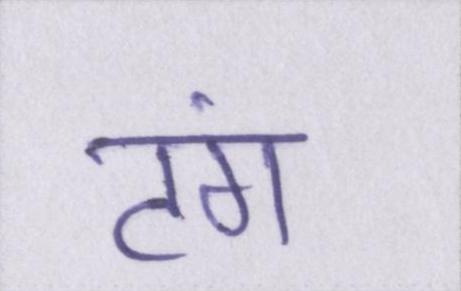 टंग